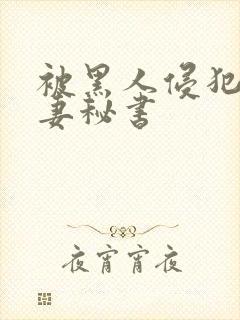 被黑人侵犯
妻秘书
夜宵宵夜